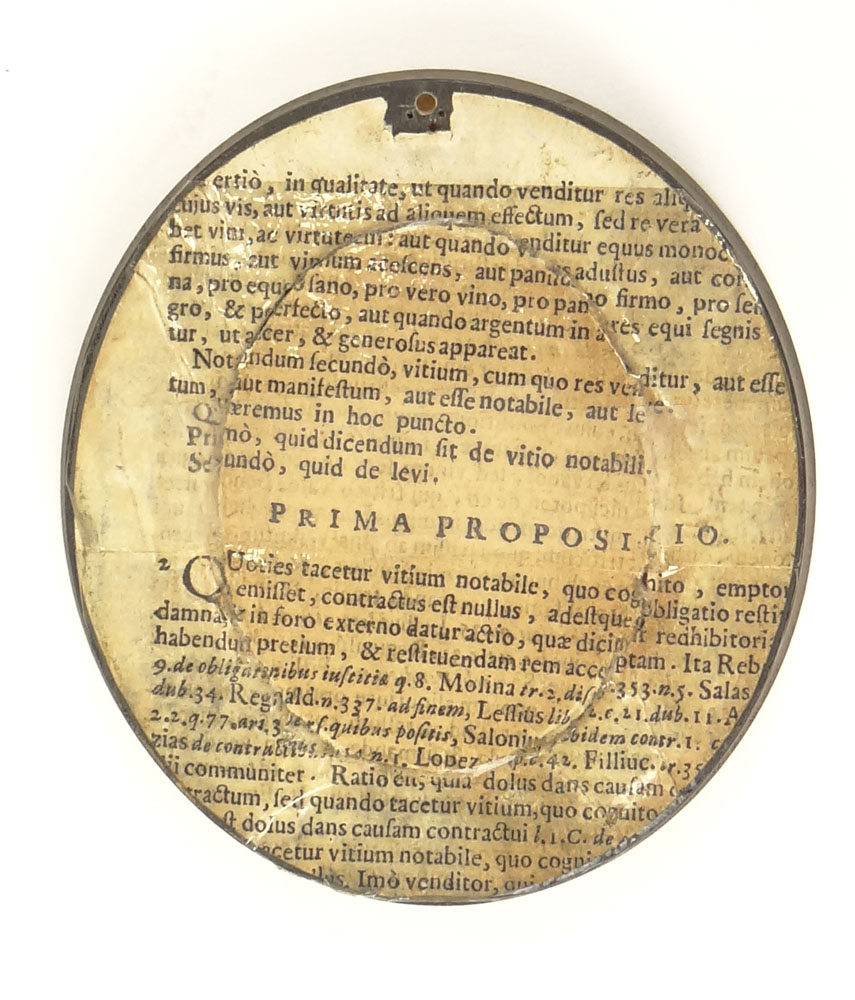 ertiò, in qualitate, ut quando venditur res
cujus vis, aut virtutis ad aliquem effectum, sed re vera
bet vim, ac virtutem: aut quando venditur equus
firmus, aut vinum acescens, aut panis adustus, aut
na, pro equo sano, pro vero vino, pro pano firmo, pro
gro, & perfecto, aut quando argentum in aures equi segnis
tur, ut acer, & generosus appareat.
Notandum secundò, vitium, cum quo res venditur, aut esse
tum, aut manifestum, aut esse notabile, aut
Quæremus in hoc puncto.
Primò, quid dicendum sit de vitio notabili.
Secundò, quid de levi.
PRIMA PROPOSITIO.
2 QUoties tacetur vitium notabile, quo cognito, emptor
emisset, contractus est nullus, adestque obligatio
damna, & in foro externo datur actio, quæ dicitur redhibitoria
habendum pretium, & restituendam rem acceptam. Ita
9. de obligationibus iustitiæ q. 8. Molina tr. 2. disp. 353. n. 5. Salas
dub. 34. Regnald. n. 337. ad finem, Lessius lib. 2. c. 21. dub. 11.
2. 2. q. 77. art. 3. quibus positis, ibidem contr. 1.
zias de contractibus n. 1. Lopez c. 42. Filliuc. tr. 35
ii communiter. Ratio est, quia dolus dans causam
tractum, sed quando tacetur vitium, quo cognito
st dolus dans causam contractui l. 1. C. de
acetur vitium notabile, quo
Imò venditor,